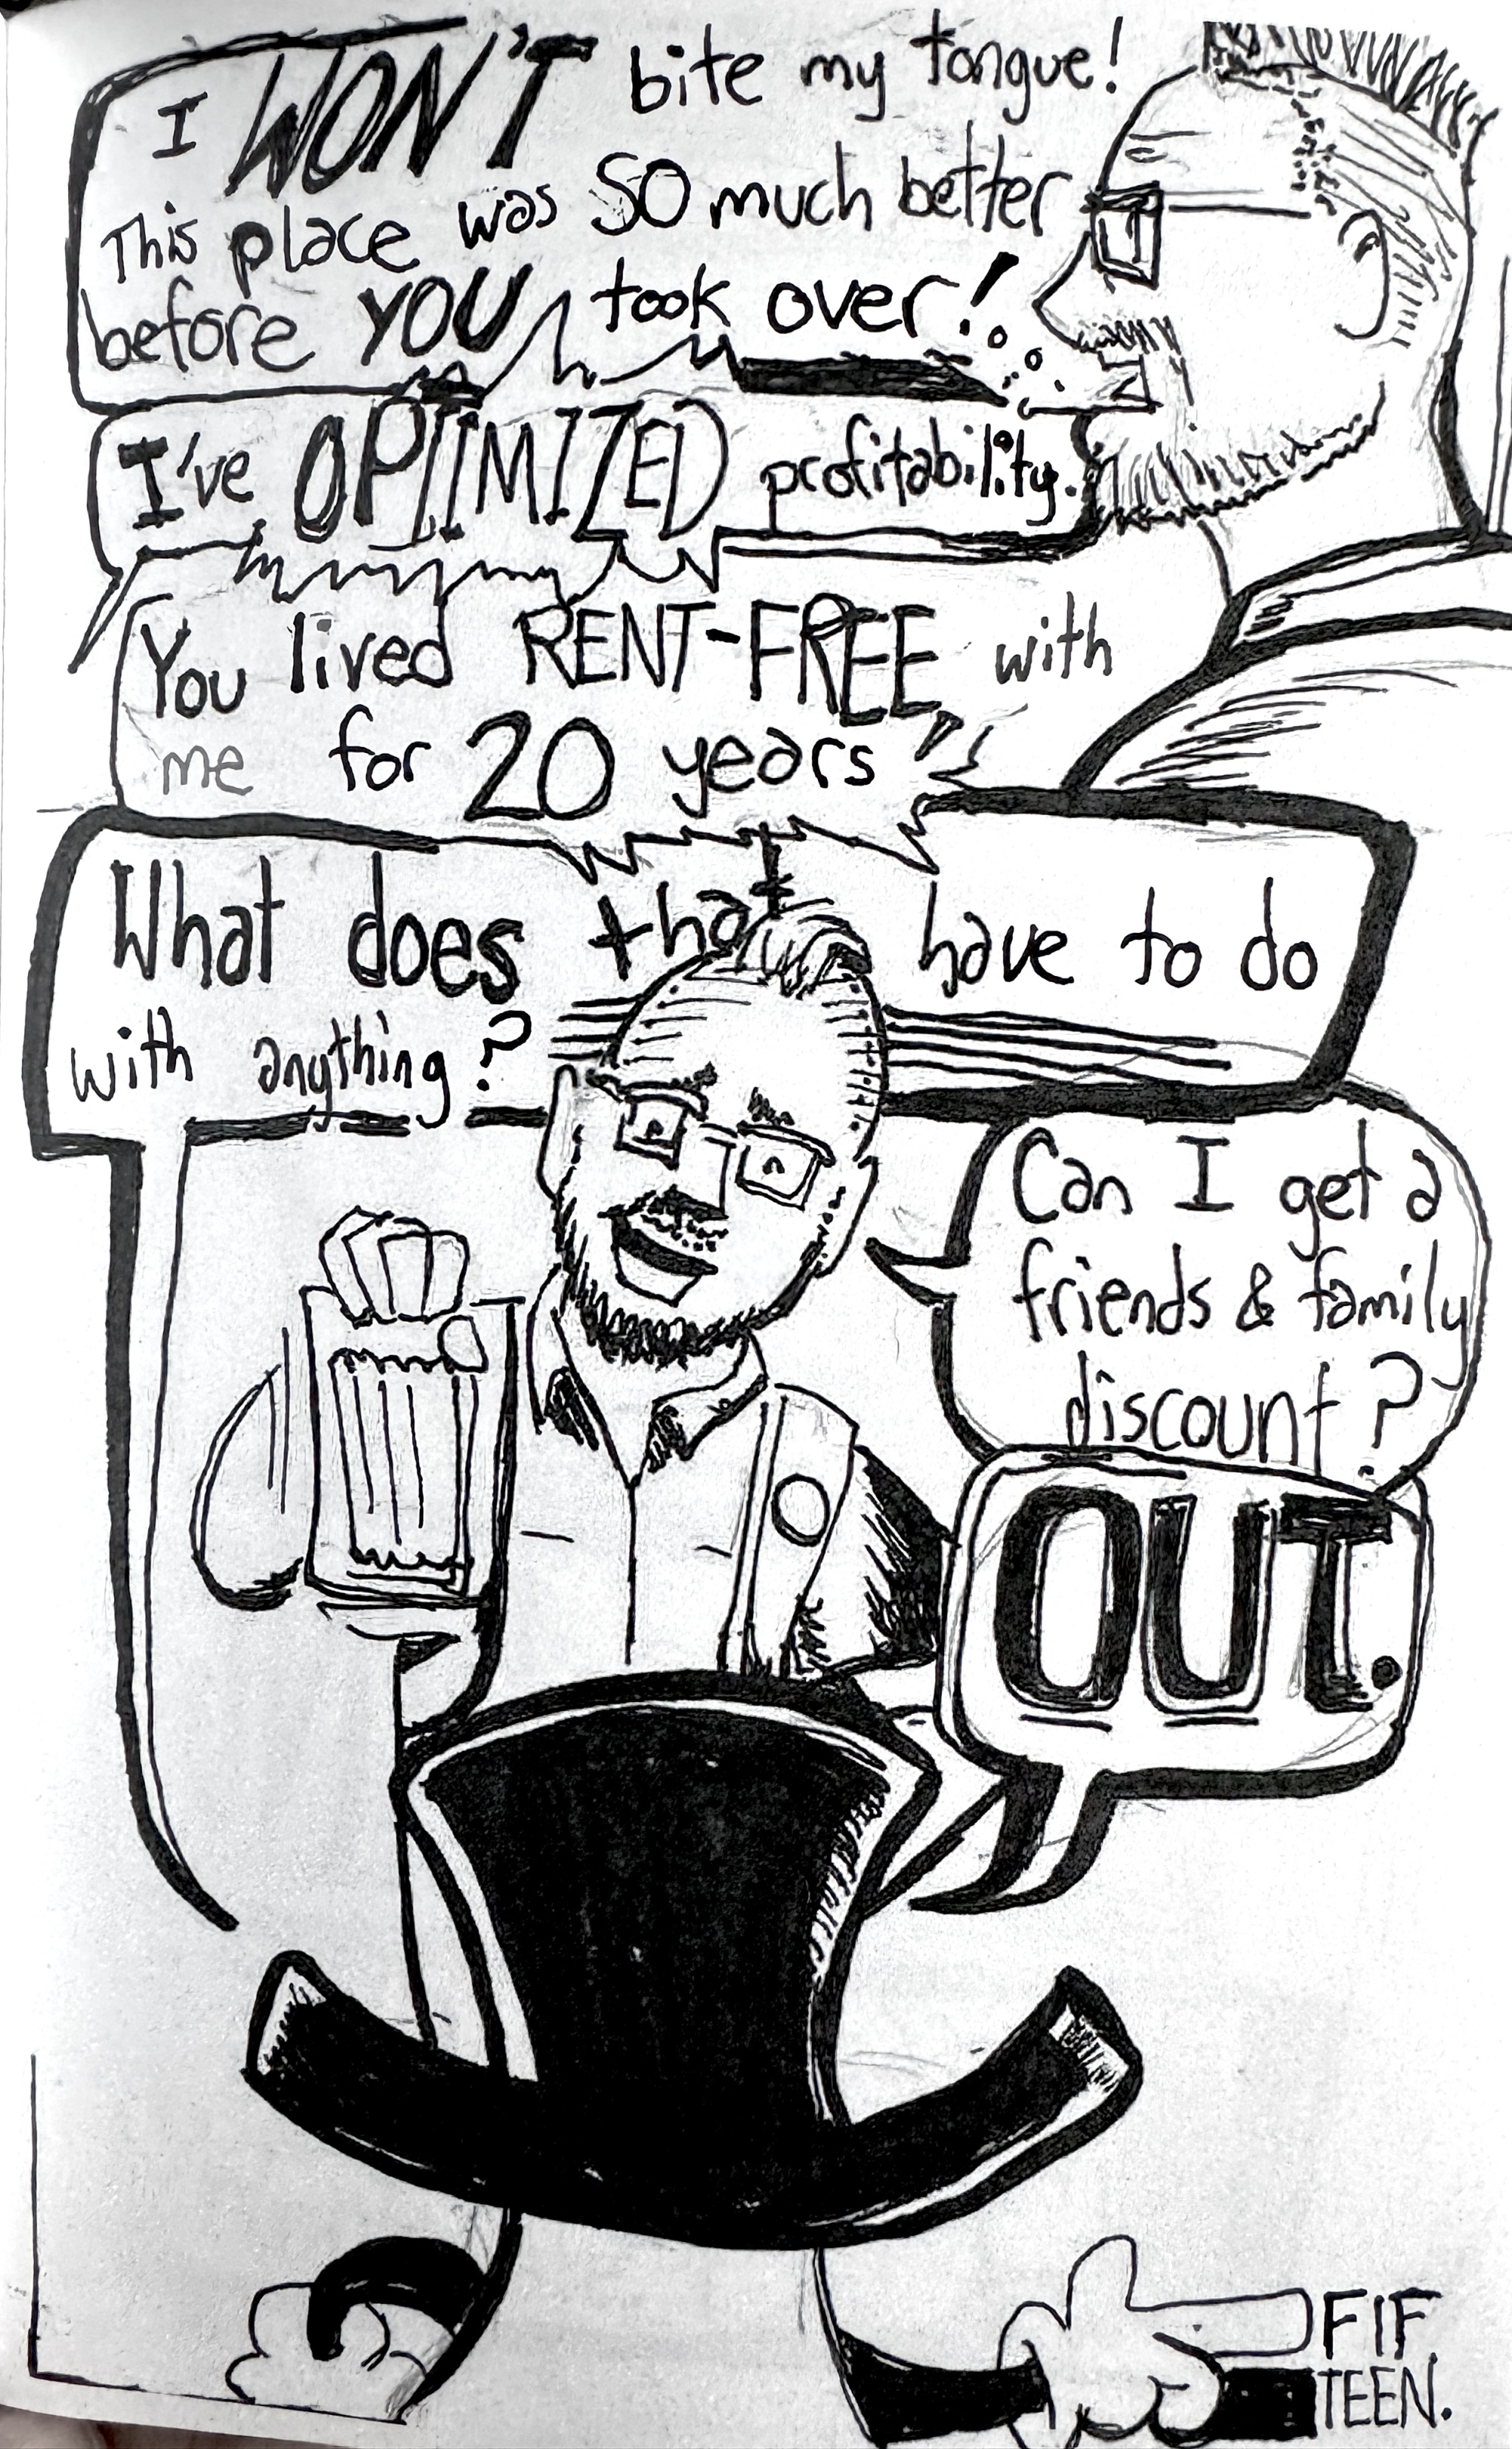 I WON'T bite my tongue!
This place was SO much better
before YOU took over!
I've OPTIMIZED profitability.
You lived RENT-FREE, with
me for 20 years!
What does that have to do
with anything?
Can I get a
friends & family
discount?
OUT.
FIF
TEEN.